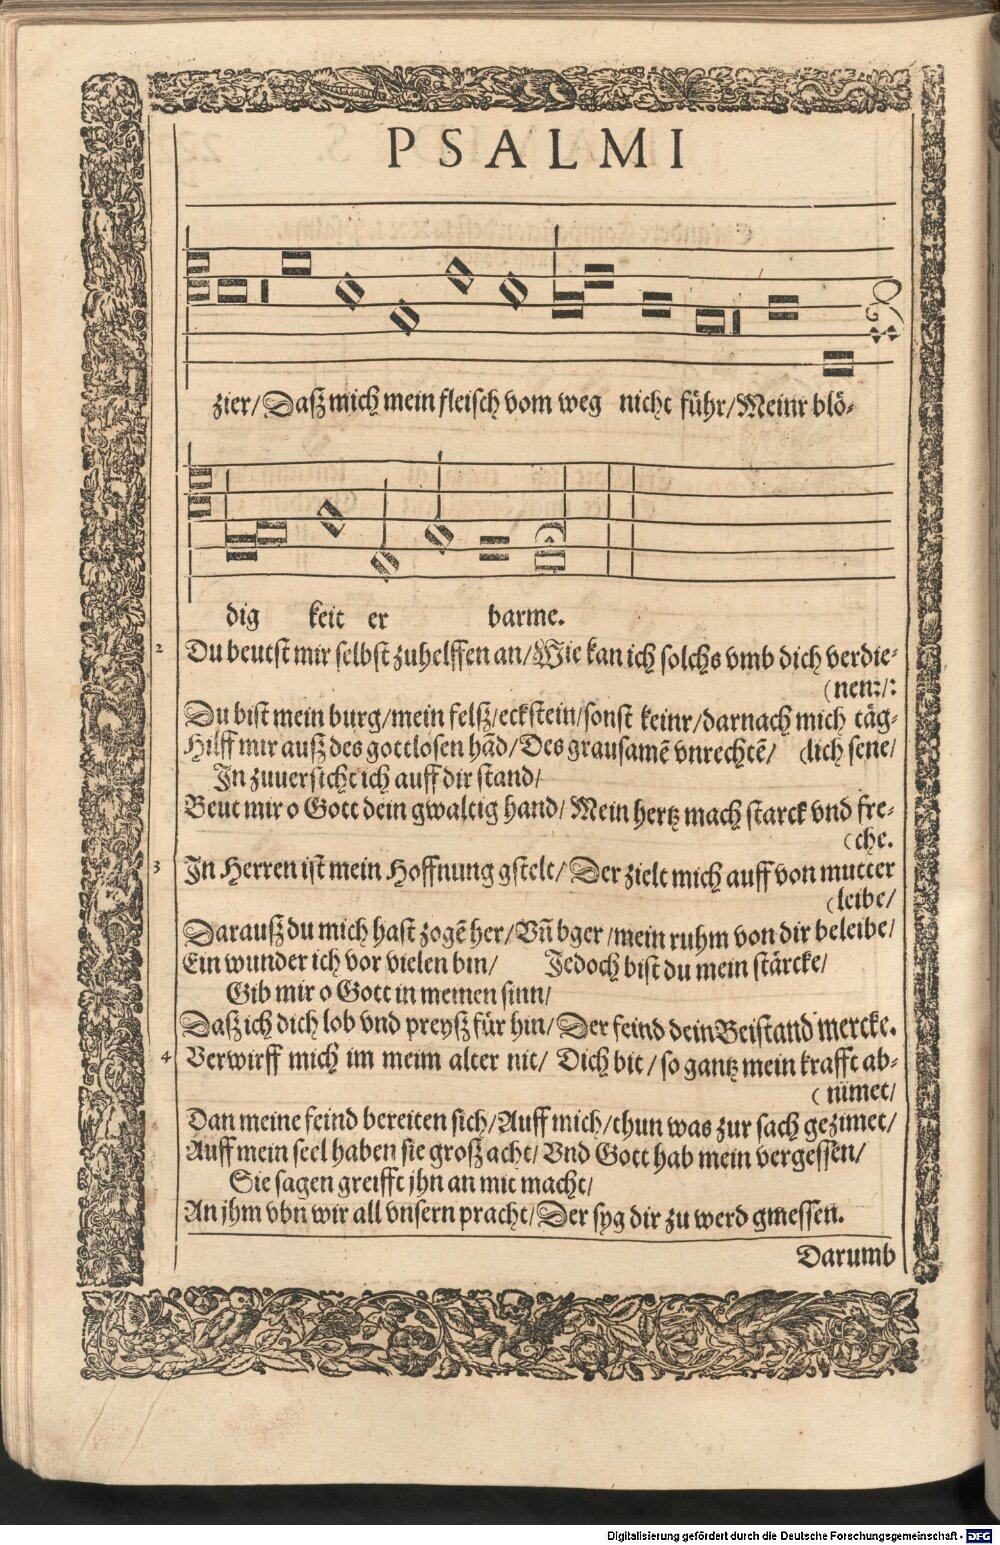 PSALMI
zier/ Dasz mich mein fleisch vom weg nicht führ/ Meinr blö-
dig keit er barme.
2 Du beutst mir selbst zuhelffen an/ Wie kan ich solchs vmb dich verdie-
(nen:/:
Du bist mein burg/ mein felsz/ eckstein/ sonst keinr/ darnach mich täg-
Hilff mir ausz des gottlosen hād/ Des grausamē vnrechtē/ (lich sene/
In zuuersicht ich auff dir stand/
Beut mir o Gott dein gwaltig hand/ Mein hertz mach starck vnd fre-
(che.
3 In Herren ist mein Hoffnung gstelt/ Der zielt mich auff von mutter
(leibe/
Darausz du mich hast zogē her/ Vn̄ bger/ mein ruhm von dir beleibe/
Ein wunder ich vor vielen bin/ Jedoch bist du mein stärcke/
Gib mir o Gott in meinen sinn/
Dasz ich dich lob vnd preysz für hin/ Der feind dein Beistand mercke.
4 Verwirff mich im meim alter nit/ Dich bit/ so gantz mein krafft ab-
(nimet/
Dan meine feind bereiten sich/ Auff mich/ thun was zur sach gezimet/
Auff mein seel haben sie grosz acht/ Vnd Gott hab mein vergessen/
Sie sagen greifft jhn an mit macht/
An jhm vbn wir all vnsern pracht/ Der syg dir zu werd gmessen.
Darumb
Digitalisierung gefördert durch die Deutsche Forschungsgemeinschaft - DFG